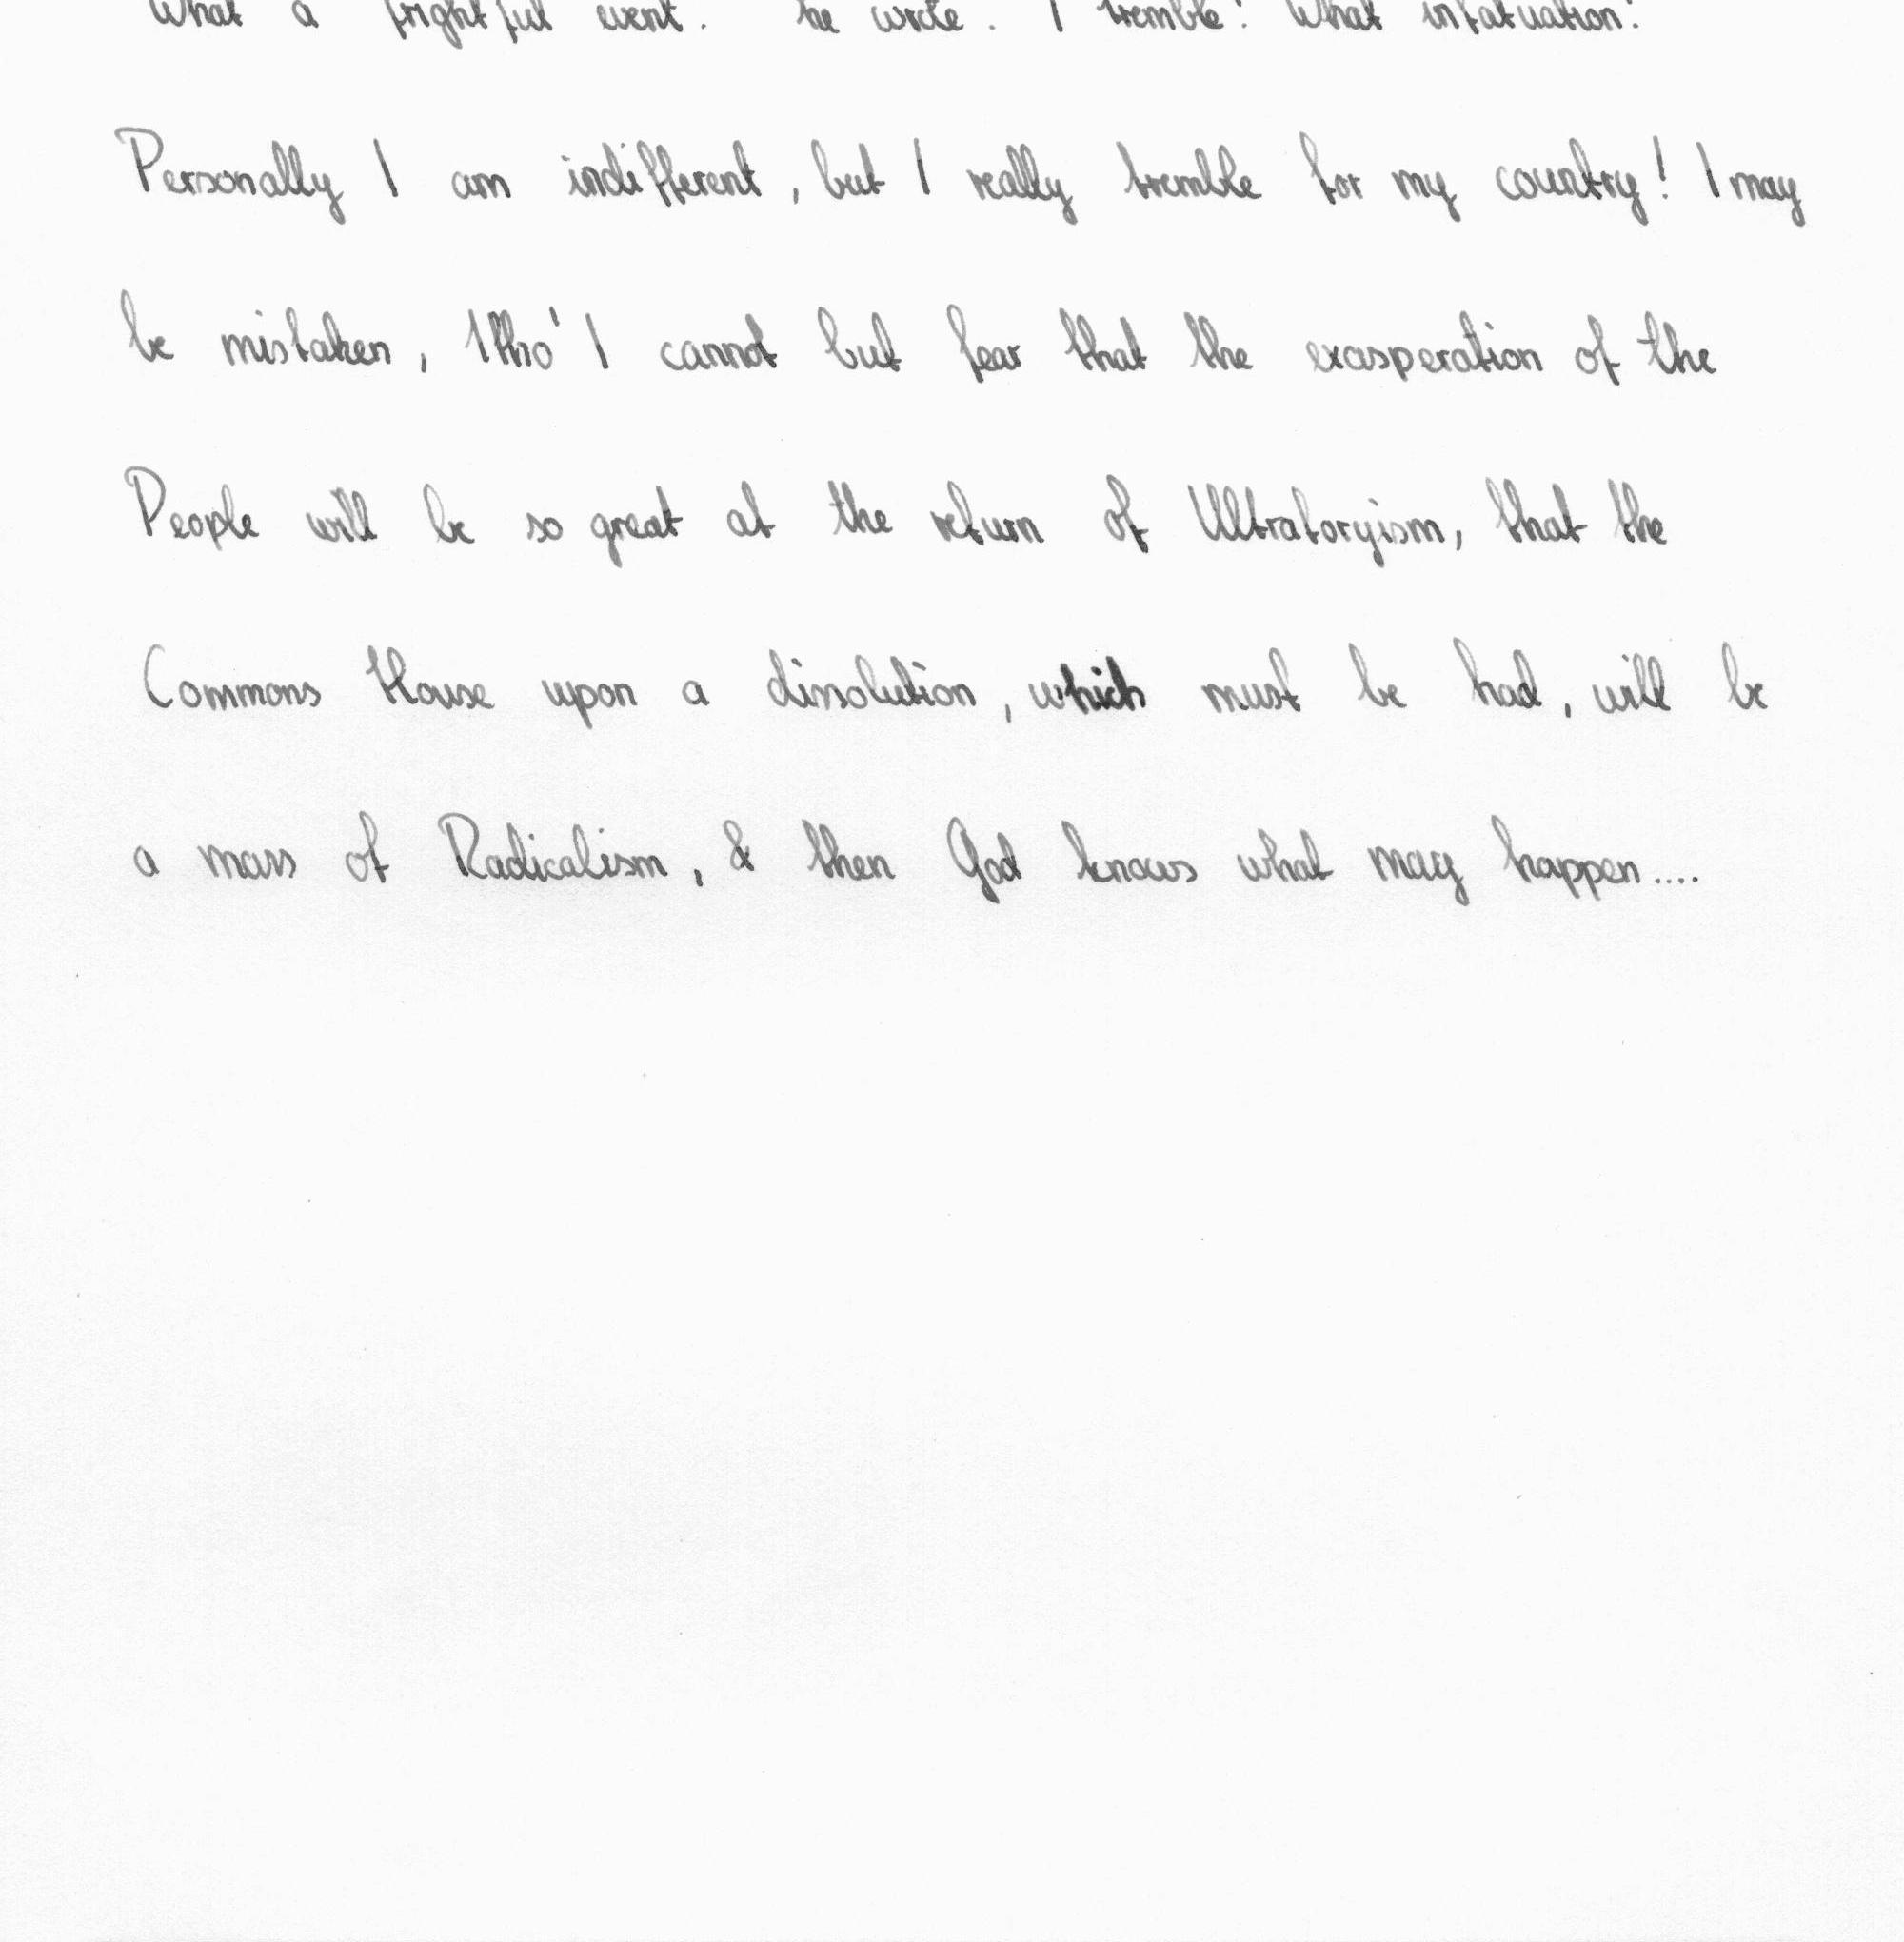 What a frightful event. he wrote. I tremble! What infatuation!
Personally I am indifferent, but I really tremble for my country! I may
be mistaken, tho' I cannot but fear that the exasperation of the
People will be so great at the return of Ultratoryism, that the
Commons House upon a dissolution, which must be had, will be
a mass of Radicalism, & then God knows what may happen....